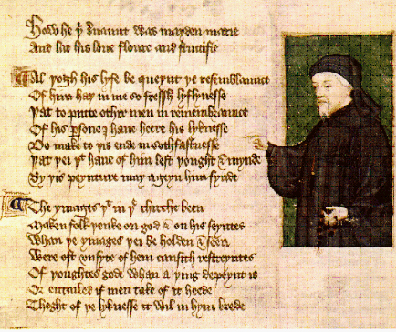 How he þͥ seruaunt was mayden marie
And lat his loue floure and fructifie
Al þogh his lyfe be queynt þe resemblaunce
Of him haþ in me so fressh lyflynesse
Þat to putte othir men in remembraunce
Of his ꝑsone I haue heere his lyknesse
Do make to þis ende in sothfastnesse
Þat þei þͭ haue of him lest þought & mynde
By þis peynture may ageyn him fynde
The ymages þͭ in þe chirche been
Maken folk þenke on god & on his seyntes
Whan þe ymages þei be holden & seen
Were oft vnsyte of hem causith restreyntes
Of þoughtes gode whan a þing depeynt is
Or entailed if men take of it heede
Thoght of þe lyknesse it wil in hym brede